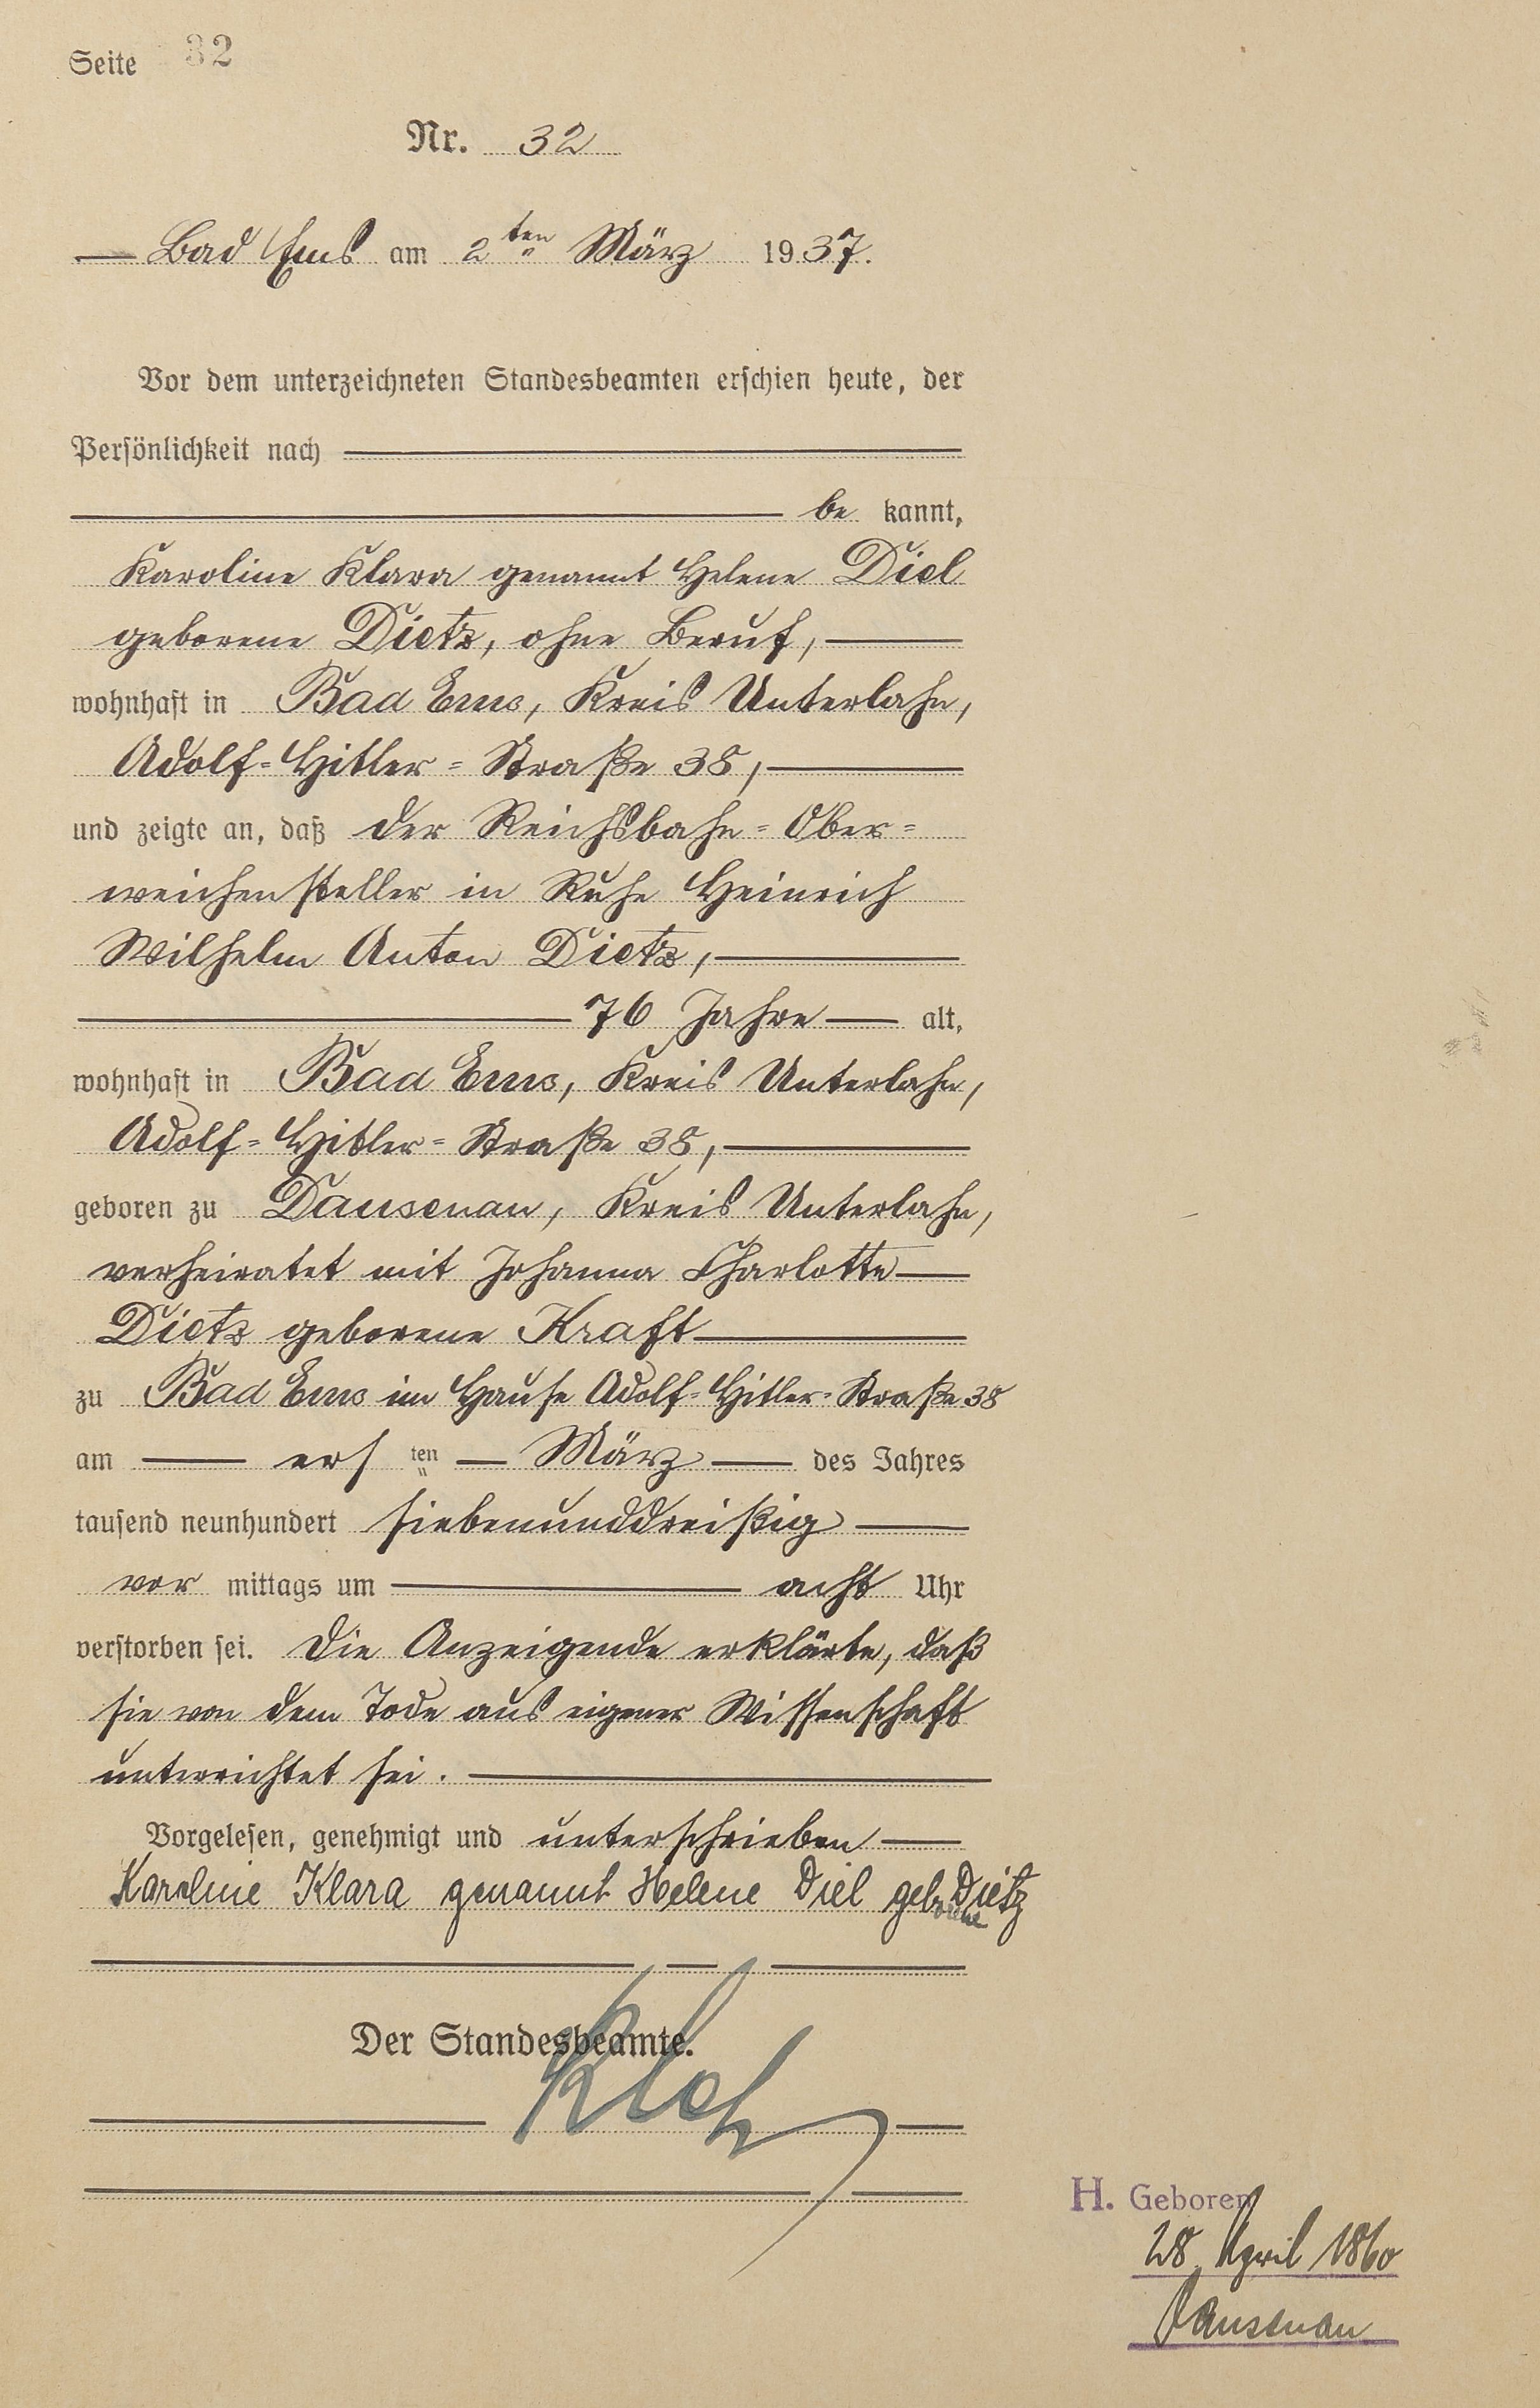 Seite 32
Nr. 32
Bad Ems am 2ten März 1937.
Vor dem unterzeichneten Standesbeamten erschien heute, der
Persönlichkeit nach
be kannt,
Karoline Klara genannt Helene Diel
geborene Dietz, ohne Beruf,
wohnhaft in Bad Ems, Kreis Unterlahn,
Adolf-Hitler-Straße 38,
und zeigte an, daß der Reichsbahn-Ober-
weichensteller in Ruhe Heinrich
Wilhelm Anton Dietz,
76 Jahre alt,
wohnhaft in Bad Ems, Kreis Unterlahn,
Adolf-Hitler-Straße 38,
geboren zu Dausenau, Kreis Unterlahn,
verheiratet mit Johanna Charlotte
Dietz geborene Kraft
zu Bad Ems im Hause Adolf-Hitler-Straße 38
am ers ten März des Jahres
tausend neunhundert siebenunddreißig
vor mittags um acht Uhr
verstorben sei. Die Anzeigende erklärte, daß
sie von dem Tode aus eigener Wissenschaft
unterrichtet sei.
Vorgelesen, genehmigt und unterschrieben
Karoline Klara genannt Helene Diel geborene Dietz
Der Standesbeamte.
H. Geboren
28. April 1860
Dausenau